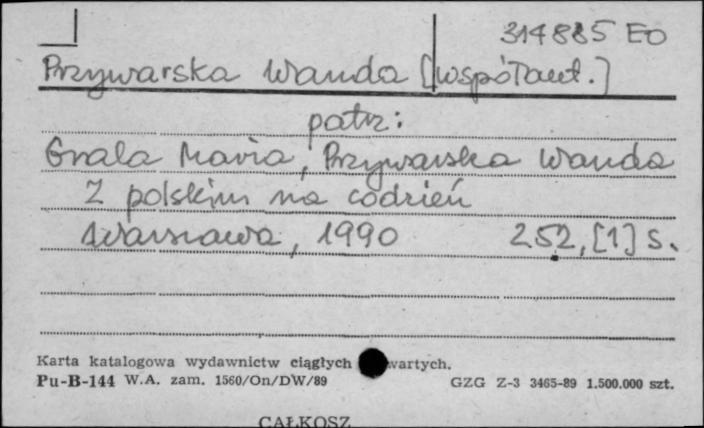 314885 EO
Przywarska Wanda [współaut.]
patrz:
Grala Maria, Przywarska Wanda
Z polskim na codzień
Warszawa, 1990 252, [1] s.
Karta katalogowa wydawnictw ciągłych wartych.
Pu-B-144 W.A. zam. 1560/On/DW/89 GZG Z-3 3465-89 1.500.000 szt.
CAŁKOSZ